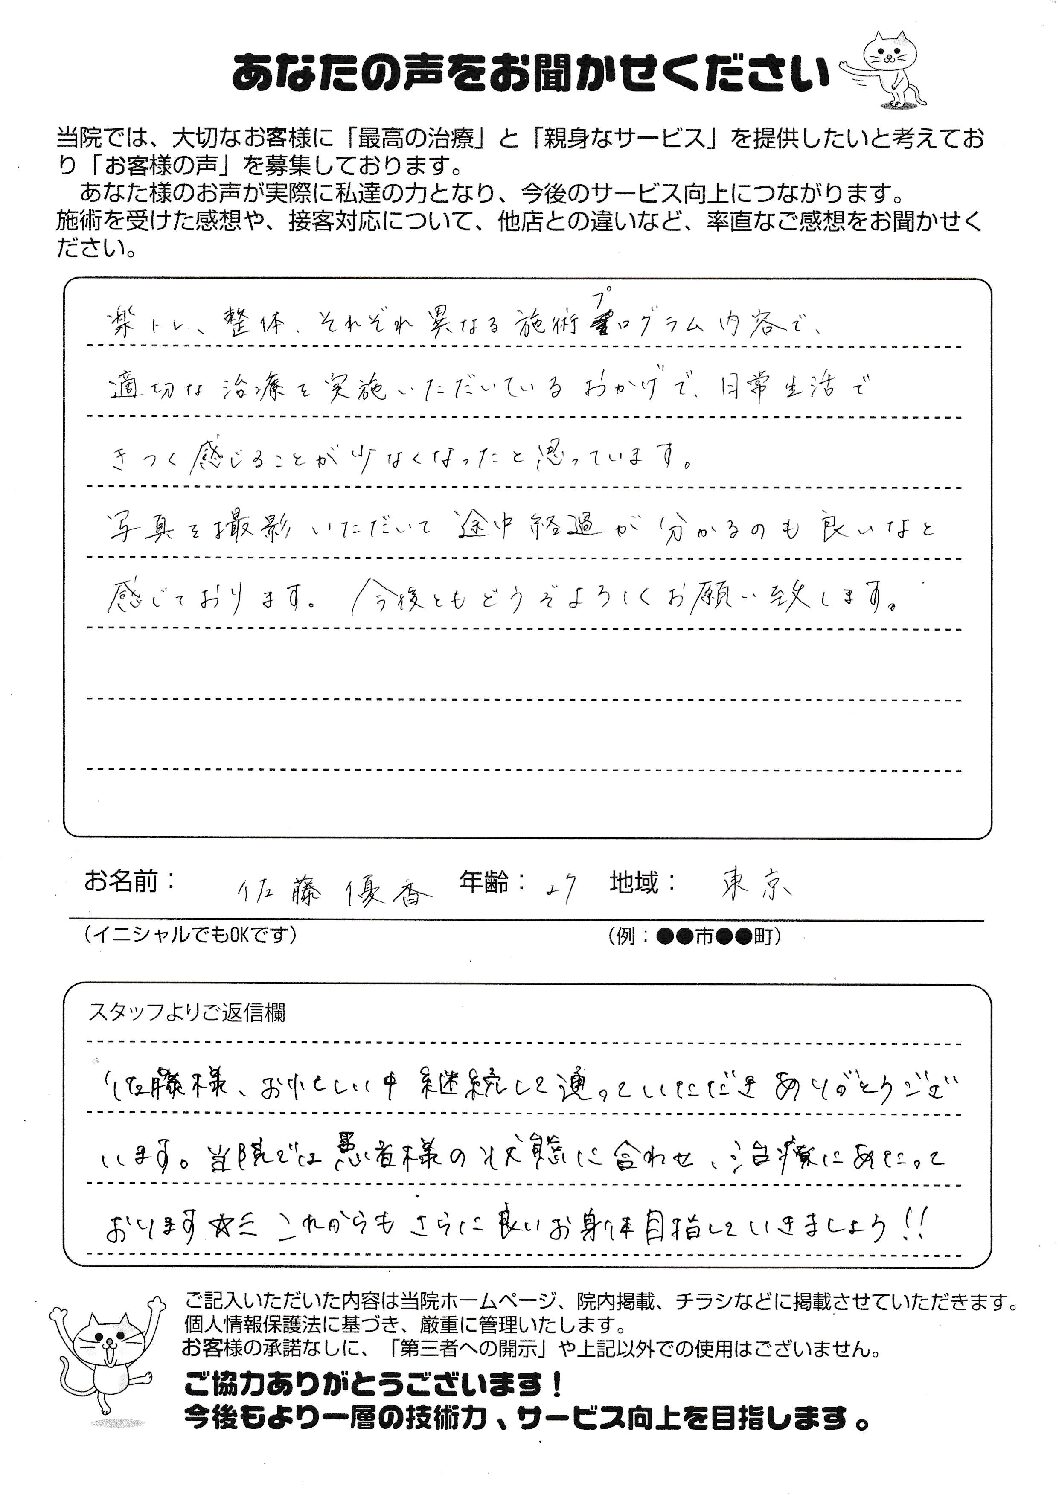 あなたの声をお聞かせください
当院では、大切なお客様に「最高の治療」と「親身なサービス」を提供したいと考えてお
り「お客様の声」を募集しております。
あなた様のお声が実際に私達の力となり、今後のサービス向上につながります。
施術を受けた感想や、接客対応について、他店との違いなど、率直なご感想をお聞かせく
ださい。
楽トレ、整体、それぞれ異なる施術プログラム内容で、
適切な治療を実施いただいているおかげで、日常生活で
きつく感じることが少なくなったと思っています。
写真を撮影いただいて途中経過が分かるのも良いなと
感じております。今後ともどうぞよろしくお願い致します。
お名前： 佐藤優香 年齢： 27 地域： 東京
（イニシャルでもOKです） （例：●●市●●町）
スタッフよりご返信欄
佐藤様、お忙しい中継続して通っていただきありがとうござ
います。当院では患者様の状態に合わせ、治療にあたって
おります☆ミ これからもさらに良いお身体目指していきましょう!!
ご記入いただいた内容は当院ホームページ、院内掲載、チラシなどに掲載させていただきます。
個人情報保護法に基づき、厳重に管理いたします。
お客様の承諾なしに、「第三者への開示」や上記以外での使用はございません。
ご協力ありがとうございます！
今後もより一層の技術力、サービス向上を目指します。